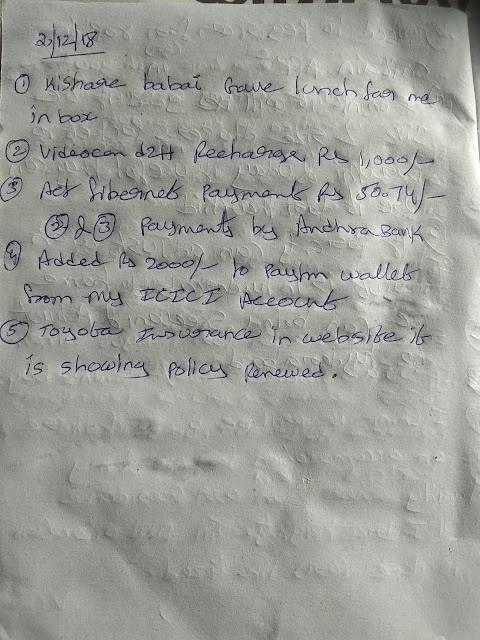 2/12/18
① Kishore babai Gave lunch for me
in box
② Videocon d2H Recharge Rs 1,000/-
③ Act fibernet Payment Rs 5074/-
② & ③ Payments by Andhra Bank
④ Added Rs 2000/- to Paytm wallet
from my ICICI Account
⑤ Toyota Insurance in website it
is showing policy renewed.